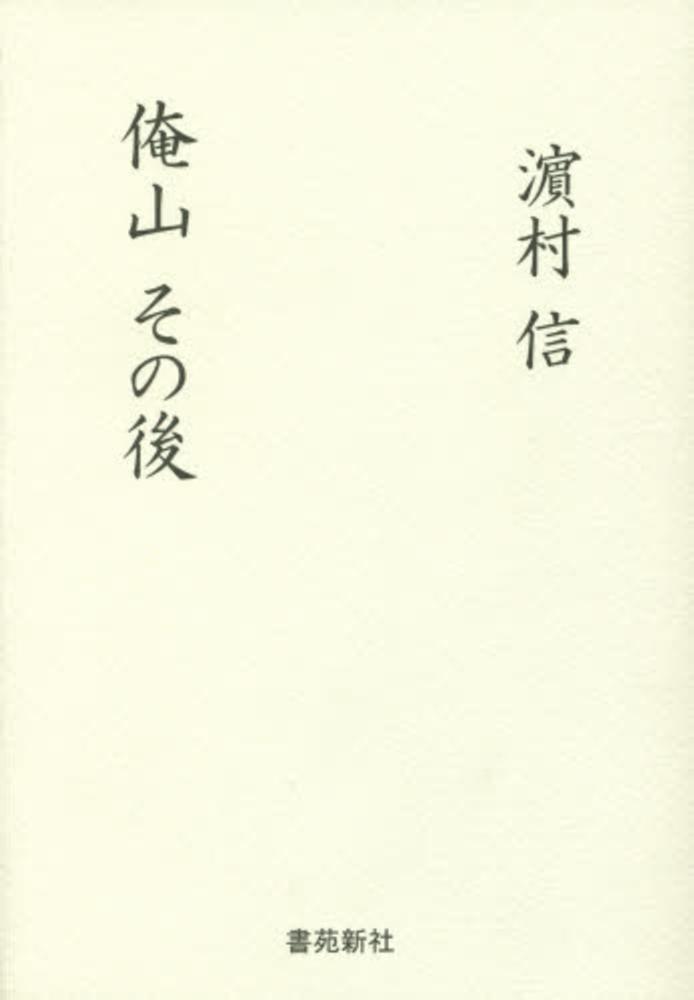 濵村 信
俺山 その後
書苑新社